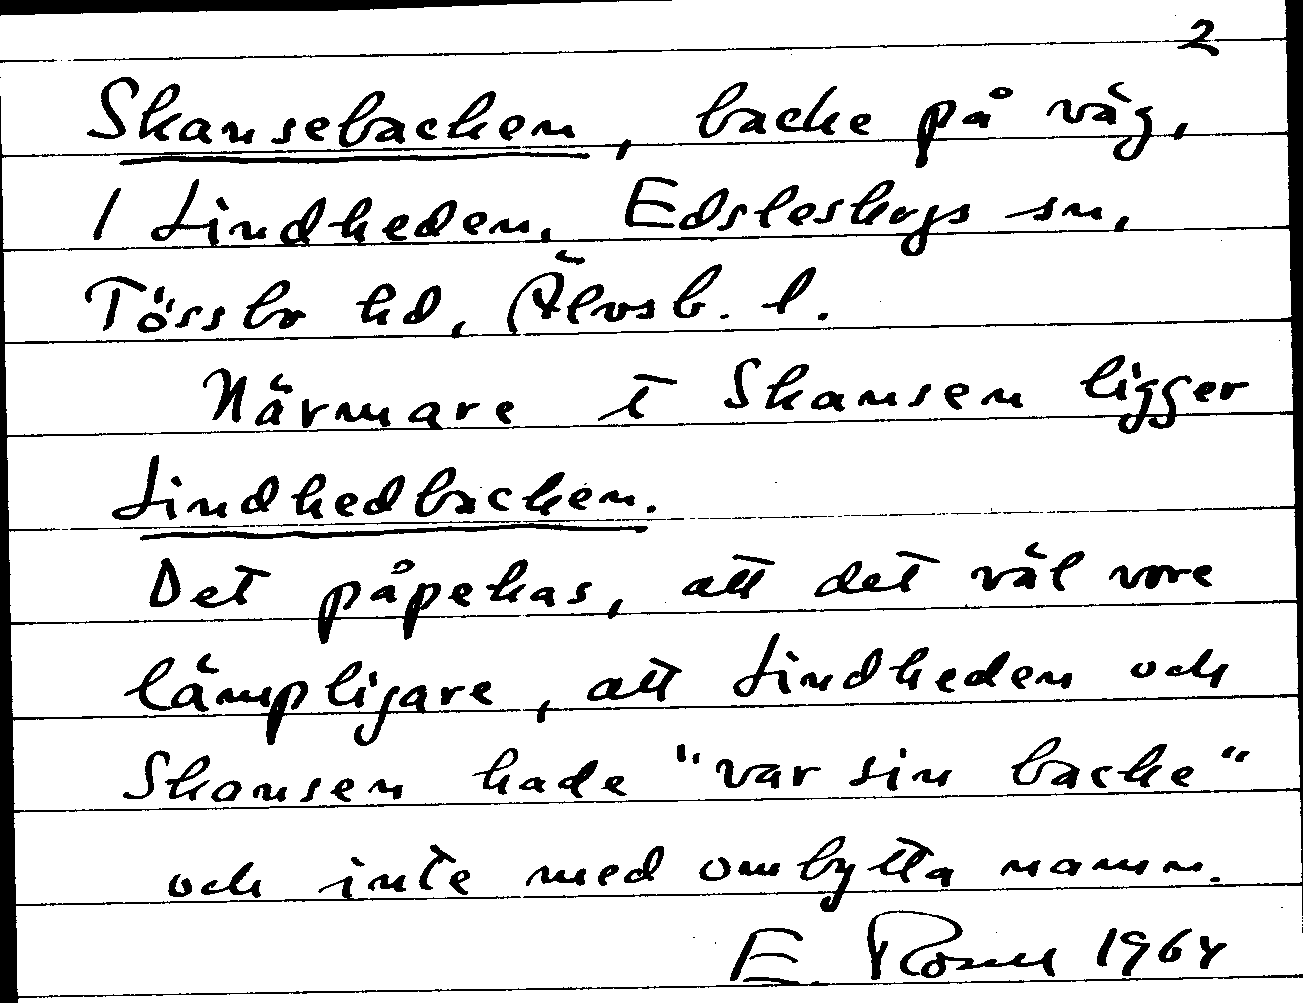 2
Skansebacken, backe på väg,
1 Lindheden, Edsleskogs sn,
Tössbo hd, Älvsb. l.
Närmare t Skansen ligger
Lindhedbacken.
Det påpekas, att det väl vore
lämpligare, att Lindheden och
Skansen hade "var sin backe"
och inte med ombytta namn.
E. 1964